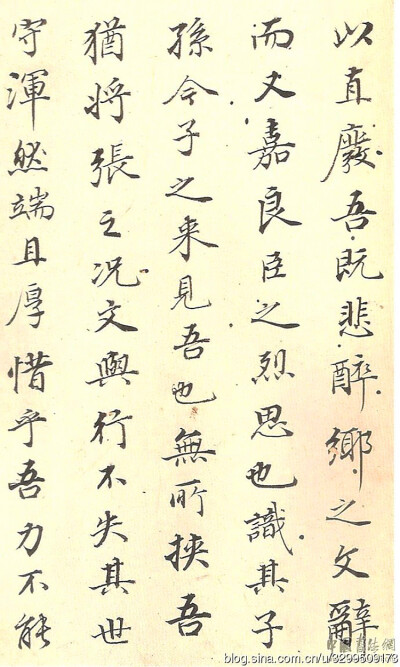 以直廢吾既悲醉鄉之文辭
而又嘉良臣之烈思也識其子
孫今子之来見吾也無所挾吾
猶將張之况文與行不失其世
守渾然端且厚惜乎吾力不能
中國書法網
blog.sina.com.cn/u/3299509173